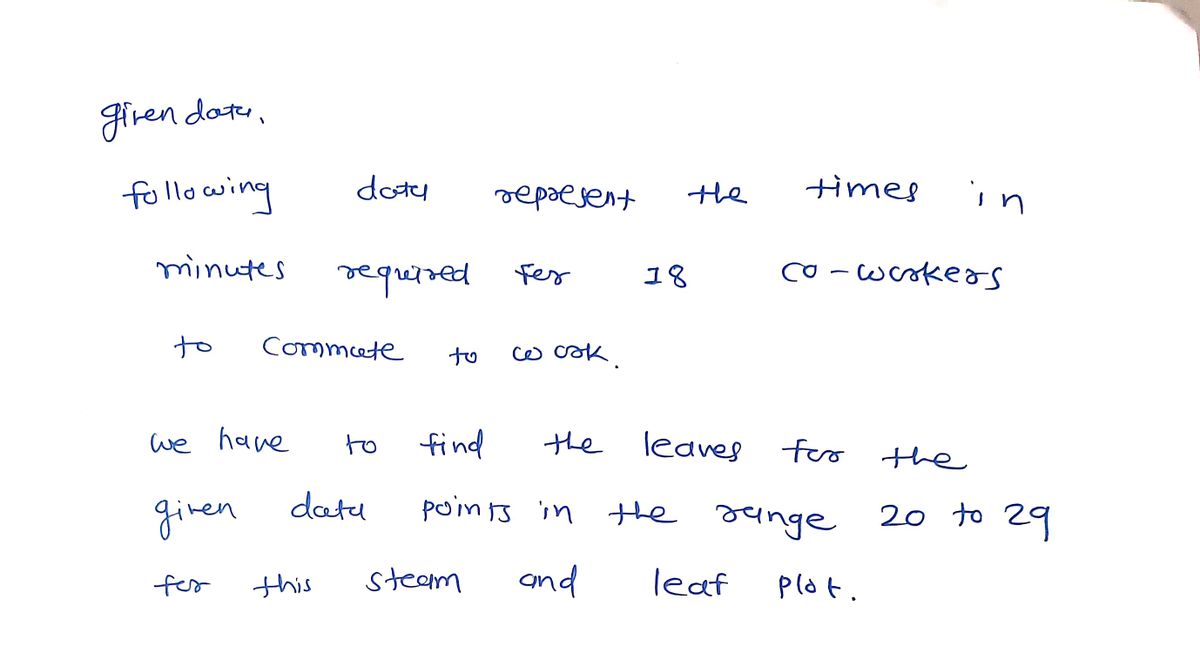 given data,
following data represent the times in
minutes required for 18 co-workers
to commute to work.
we have to find the leaves for the
given data points in the range 20 to 29
for this steam and leaf plot.